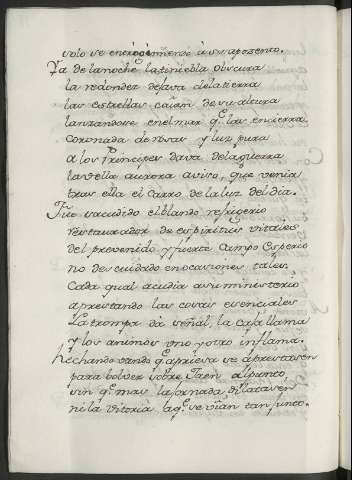 solo se encaminando a su aposento.
Ya de la noche la tiniebla obscura
la redondez dejava de la tierra
las estrellas caían de su altura
lanzandose en el mar q.e las encierra
coronada de rosas y luz pura
a los Principes dava de la guerra
la vella aurora aviso, q.e se venia
tras ella el carro de la luz del dia.
Fue sacudido el blando refrigerio
restaurador de espiritus vitales
del prevenido y fuerte campo Esperio
no descuidado en ocasiones tales,
Cada qual acudia a su ministerio
aprestando las cosas esenciales
La trompa dá señal, la caja llama
y los animos uno y otro inflama.
Hechando vando q.e apriesa se aprestasen
para bolver sobre Jaen al punto,
sin q.e mas la jornada dilatasen
ni la vitoria, la q.e se vian tan junto.